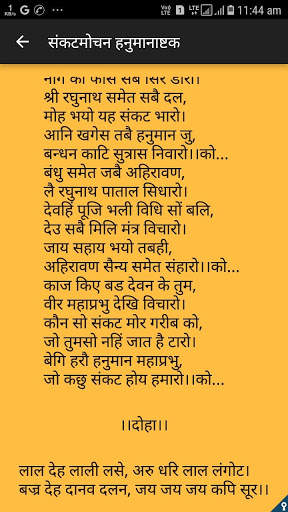 11:44 am
संकटमोचन हनुमानाष्टक
नाग की फाँस सबै सिर डारो।
श्री रघुनाथ समेत सबै दल,
मोह भयो यह संकट भारो।
आनि खगेस तबै हनुमान जु,
बन्धन काटि सुत्रास निवारो।।को...
बंधु समेत जबै अहिरावण,
लै रघुनाथ पाताल सिधारो।
देवहिं पूजि भली विधि सों बलि,
देउ सबै मिलि मंत्र विचारो।
जाय सहाय भयो तबही,
अहिरावण सैन्य समेत संहारो।।को...
काज किए बड देवन के तुम,
वीर महाप्रभु देखि विचारो।
कौन सो संकट मोर गरीब को,
जो तुमसो नहिं जात है टारो।
बेगि हरौ हनुमान महाप्रभु,
जो कछु संकट होय हमारो।।को...
।।दोहा।।
लाल देह लाली लसे, अरु धरि लाल लंगोट।
बज्र देह दानव दलन, जय जय जय कपि सूर।।